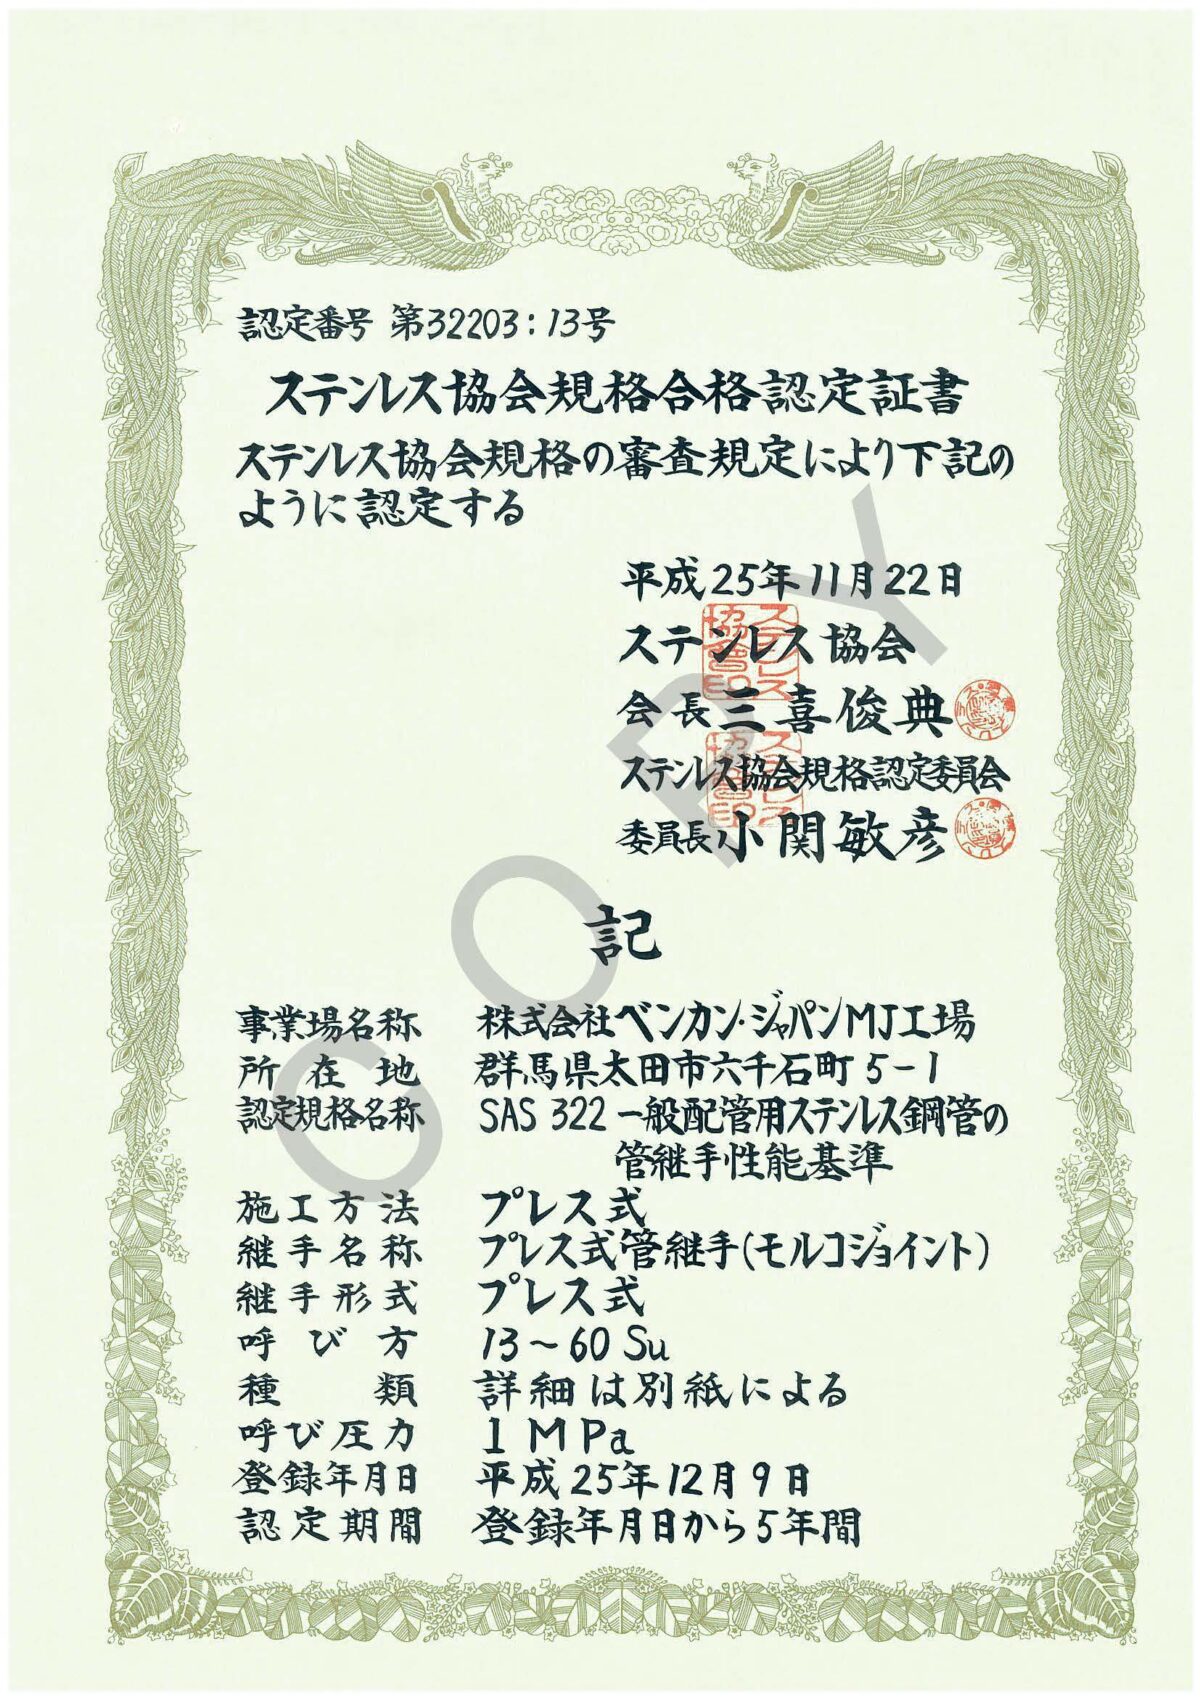 認定番号 第32203:13号
ステンレス協会規格合格認定証書
ステンレス協会規格の審査規定により下記の
ように認定する
平成25年11月22日
ステンレス協会
会長 三喜俊典
ステンレス協会規格認定委員会
委員長 小関敏彦
記
事業場名称 株式会社ベンカン・ジャパンMJ工場
所在地 群馬県太田市六千石町5-1
認定規格名称 SAS 322 一般配管用ステンレス鋼管の
管継手性能基準
施工方法 プレス式
継手名称 プレス式管継手(モルコジョイント)
継手形式 プレス式
呼び方 13~60 Su
種類 詳細は別紙による
呼び圧力 1 MPa
登録年月日 平成25年12月9日
認定期間 登録年月日から5年間
COPY
ステンレス協会印
ステンレス協会印